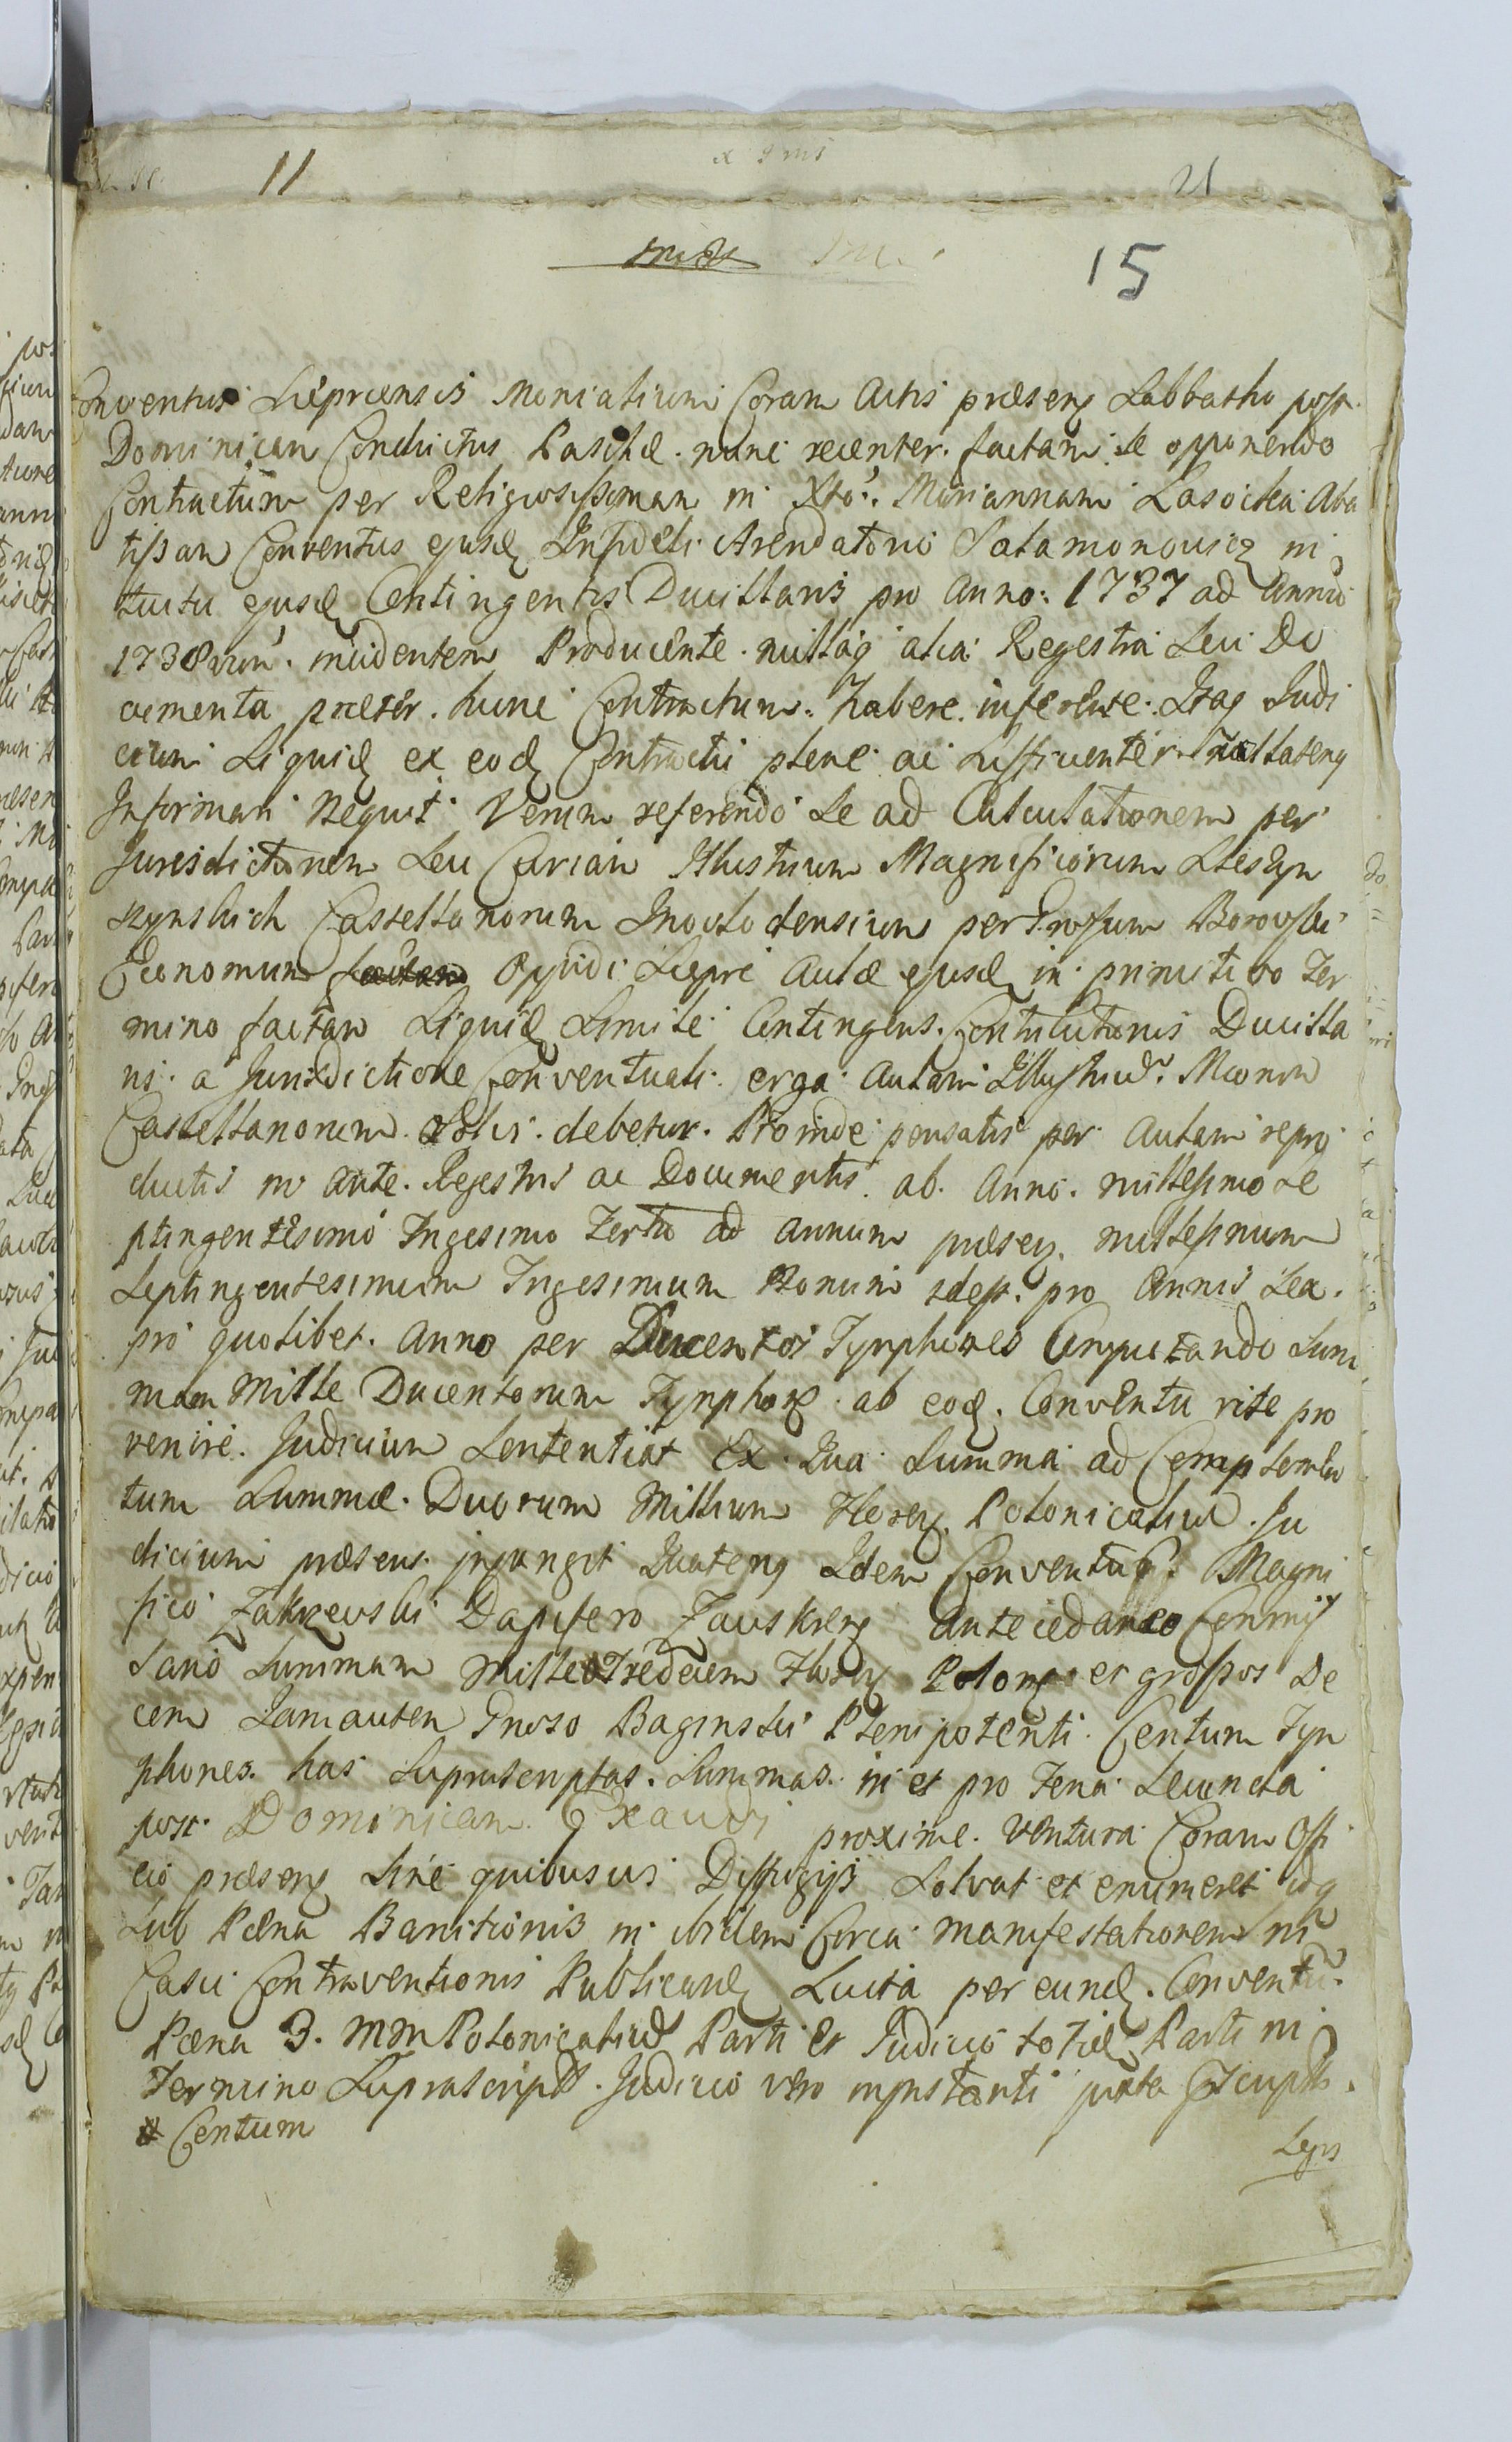 11
21
15
Conventus Sieprcensis Monialium Coram Actis præsenz Sabbatho post
Dominicam Conductus Paschæ nunc recenter factam se opponendo
Contractum per Religiosissimam in Xto. Mariannam Lasocka Aba
tissam Conventus ejusd Infideli Arendatorio Salamonowicz in
tuitu ejusd Contingentis Ducillaris pro Anno: 1737 ad Annum
1738vum incidentem Producente nullaq alia Regestra seu Do
cumenta præter hunc Contractum habere inferente. Itaq Judi
cium Liquid ex eod Contractu plene ac sufficienter nullatenq
Informari Nequit Verum referendo se ad Calculationem per
Jurisdictionem seu Curiam Illustrium Magnificorum
Castellanorum Inowlodensium per Grosum Borowski
Economum Oppidi Sieprc Aulæ ejusd in primitivo Ter
mino factam Liquid Simile Contingens Contributionis Ducilla
ris a Jurisdictione Conventuali erga Aulam Illustriu Mcorum
Castellanorum debetur. Proinde pensatis per Aulam repro
ductis in ante Regestris ac Documentis ab Anno millesimo se
ptingentesimo Trigesimo Tertio ad annum præsenz millesimum
Septingentesimum Trigesimum Nonum idest pro Annis sex
pro quolibet Anno per Ducentos Tymphones Computando Sum
mam Mille Ducentorum Tympho ab eod Conventu rite pro
venire Judicium Sententiat Ex Qua Summa ad Complemen
tum Summæ Duorum Millium Floren Polonicaliu Ju
dicium præsens injungit Quatenq Idem Conventus Magni
fico Zakrzewski Dapifero Zauskrenz Antecedaneo Commis
sario Summam Mille Tredecem Floren Polon et grossos De
cem Jam autem Groso Baginski Plenipotenti Centum Tym
phones has suprascriptas Summas in et pro Feria Secunda
post Dominicam Exaudi proxime ventura Coram Offi
cio præsenz sine quibusvis Diffugijs Solvat et enumeret idq
Sub Pæna Banitionis in ibidem Circa manifestationem in
Casu Contraventionis Publicand Luita per eund Conventu
Pæna 3. MM Polonicaliu Parti et Judicio totid Parti in
Termino Suprascripto Judicio vero in instanti juxta
Centum